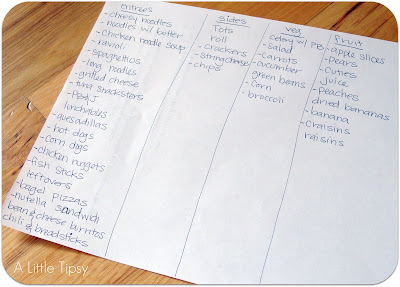 Entrees
- cheesy noodles
- noodles w/ butter
- chicken noodle soup
- ravioli
- spaghettios
- long noodles
- grilled cheese
- tuna snacksters
- PB&J
lunchables
- quesadillas
- hot dogs
- corn dogs
- chicken nuggets
- fish sticks
leftovers
- bagel pizzas
- nutella sandwich
bean & cheese burritos
chili & breadsticks
sides
Tots
roll
- crackers
- string cheese
- chips
veg
celery w/ PB
- salad
- carrots
- cucumber
green beans
- corn
- broccoli
fruit
- apple slices
- pears
- cuties
juice
- peaches
dried bananas
- banana
- craisins
raisins
A Little Tipsy